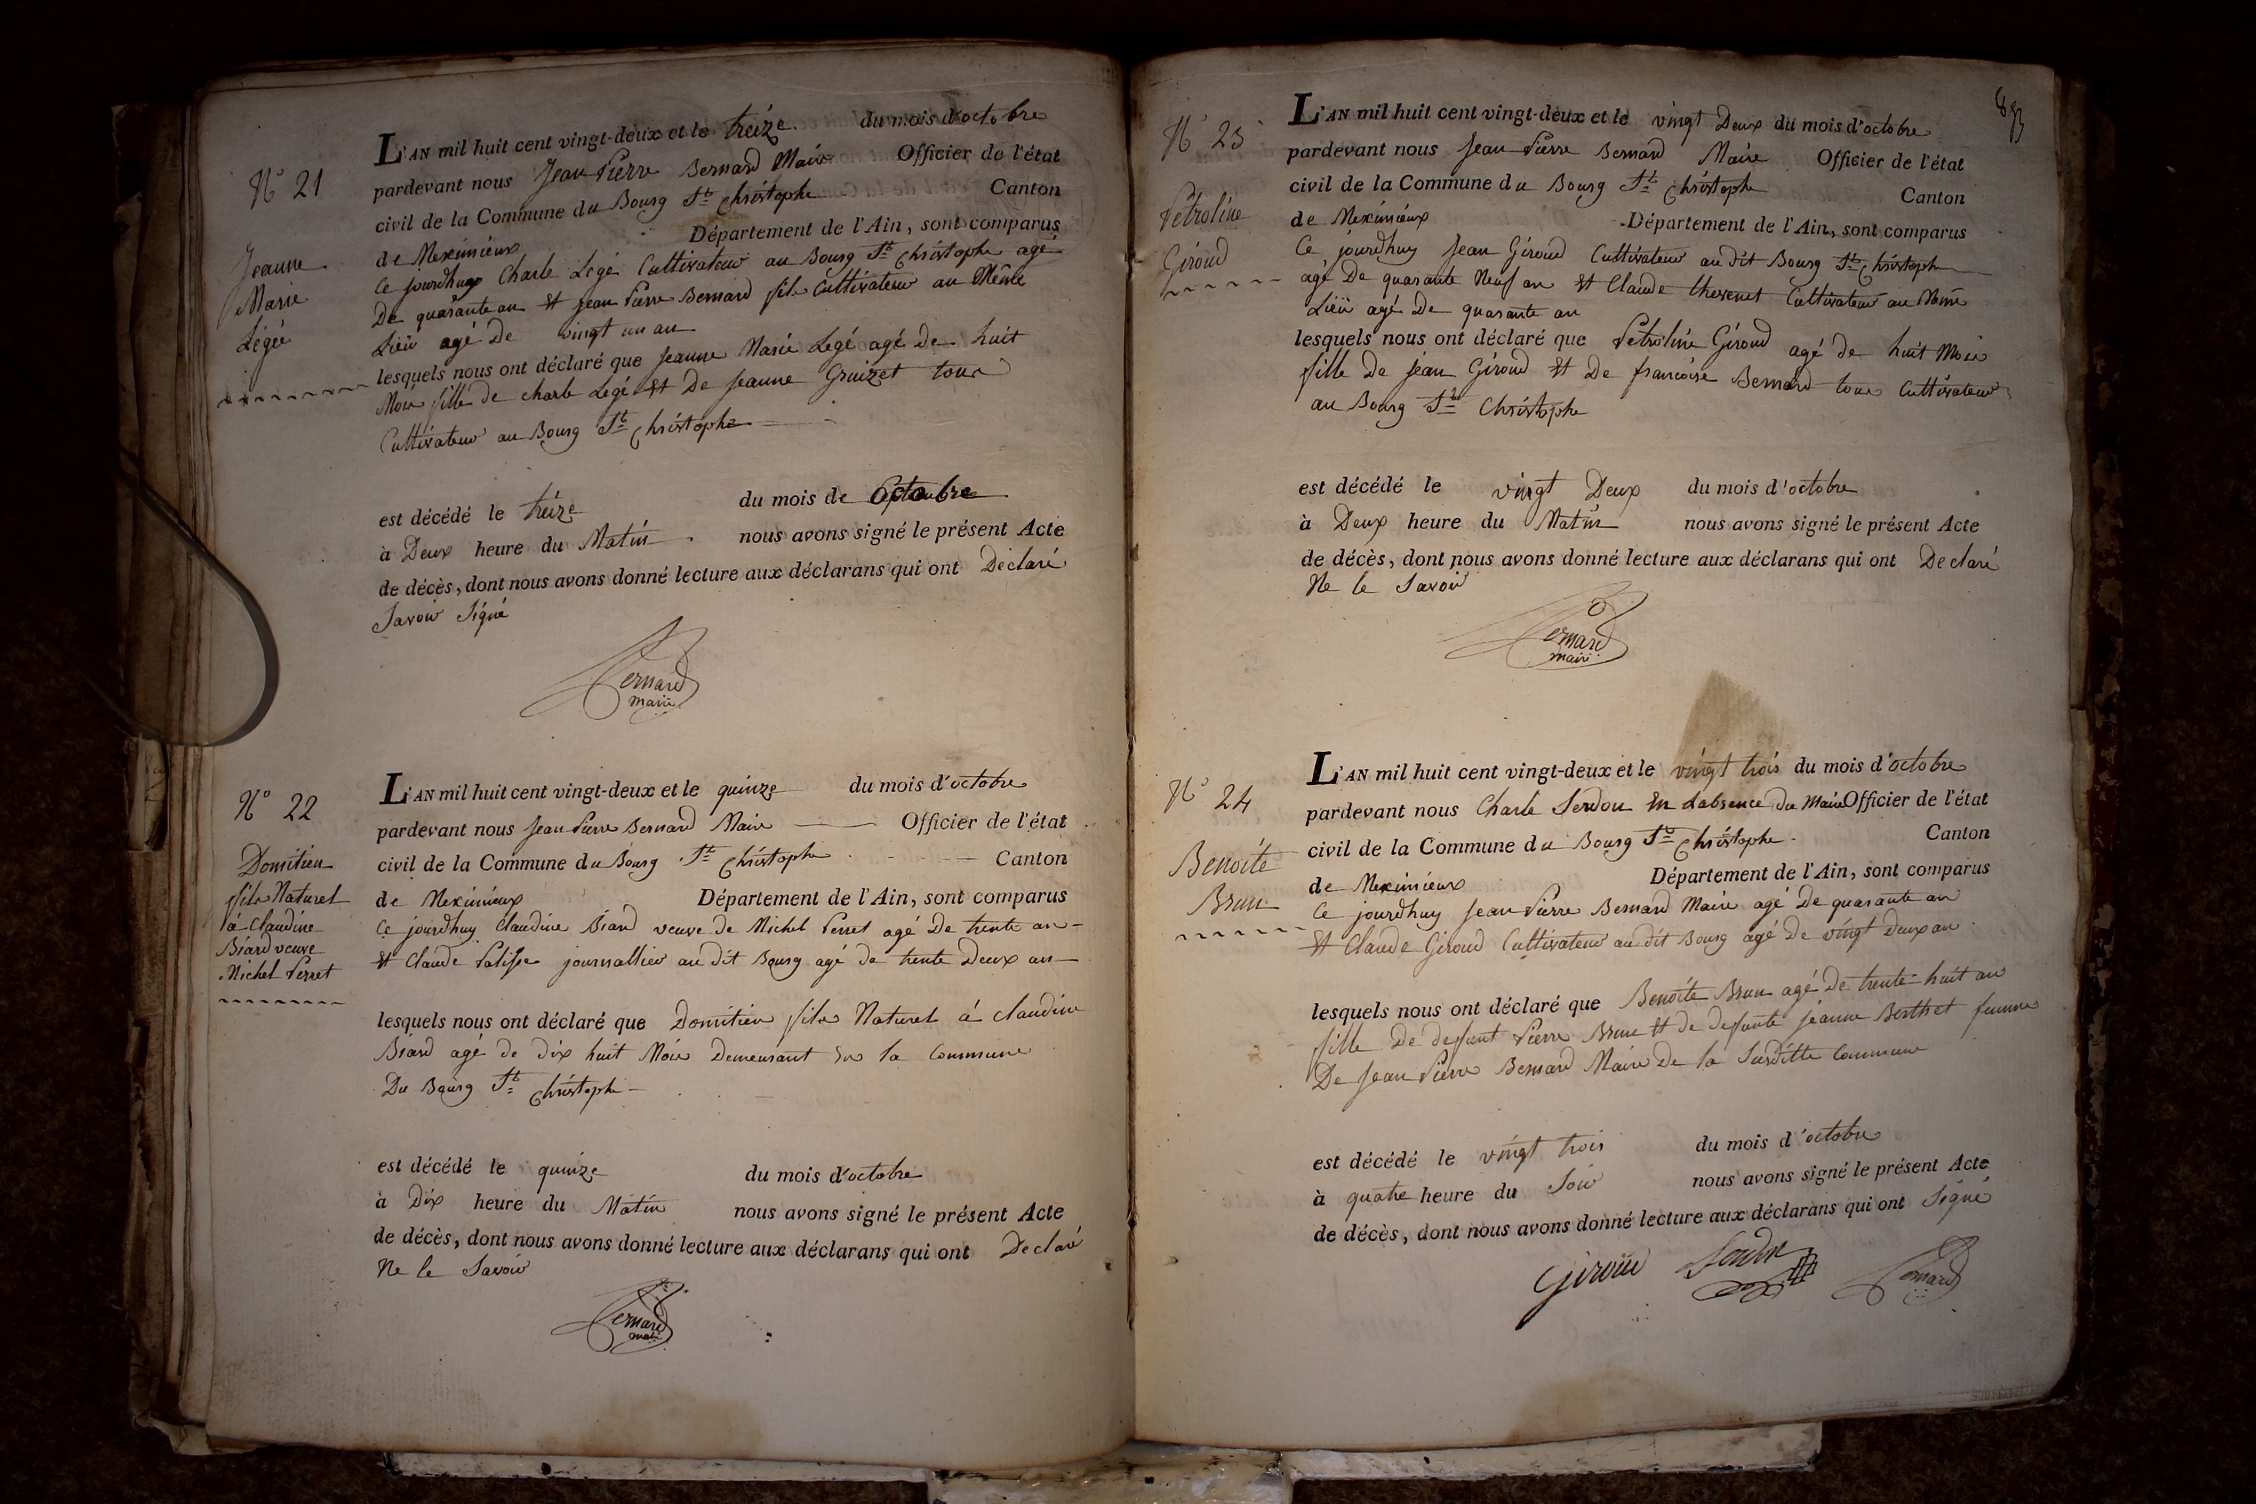 N° 21
Jeanne
Marie
Légée
L'AN mil huit cent vingt-deux et le treize du mois d'octobre
pardevant nous Jean Pierre Bernard Maire Officier de l'état
civil de la Commune du Bourg St Christophe Canton
de Meximieux Département de l'Ain, sont comparus
Ce jourdhuy Charle Legé Cultivateur au Bourg St Christophe agé
De quarante an Et Jean Pierre Bernard fils Cultivateur au Même
Lieü agé De vingt un an
lesquels nous ont déclaré que Jeanne Marie Legé agé De huit
Mois fille de charle Legé Et De Jeanne Gruizet tous
Cultivateur au Bourg St Christophe
est décédé le treize du mois de octobre
à Deux heure du Matin nous avons signé le présent Acte
de décès, dont nous avons donné lecture aux déclarans qui ont Déclaré
Savoir Signé
Bernard
maire
N° 22
Domitien
fils Naturel
à Claudine
Biard veuve
Michel Perret
L'AN mil huit cent vingt-deux et le quinze du mois d'octobre
pardevant nous Jean Pierre Bernard Maire Officier de l'état
civil de la Commune du Bourg St Christophe Canton
de Meximieux Département de l'Ain, sont comparus
Ce jourdhuy Claudine Biard veuve de Michel Perret agé De trente an
Et Claude Palisse journallier au dit Bourg agé de trente Deux an
lesquels nous ont déclaré que Domitien fils Naturel à Claudine
Biard agé de dix huit Mois Demeurant sur la Commune
Du Bourg St Christophe
est décédé le quinze du mois d'octobre
à Dix heure du Matin nous avons signé le présent Acte
de décès, dont nous avons donné lecture aux déclarans qui ont Declaré
Ne le Savoir
Bernard
maire
N° 23
Pétroline
Giroud
L'AN mil huit cent vingt-deux et le vingt Deux du mois d'octobre
pardevant nous Jean Pierre Bernard Maire Officier de l'état
civil de la Commune du Bourg St Christophe Canton
de Meximieux Département de l'Ain, sont comparus
Ce jourdhuy Jean Giroud Cultivateur au dit Bourg St Christophe
agé De quarante Neuf an Et Claude thevenet Cultivateur au Même
Lieü agé De quarante an
lesquels nous ont déclaré que Petroline Giroud agé de huit Mois
fille De Jean Giroud Et De françoise Bernard tous Cultivateur
au Bourg St Christophe
est décédé le vingt Deux du mois d'octobre
à Deux heure du Matin nous avons signé le présent Acte
de décès, dont nous avons donné lecture aux déclarans qui ont Declaré
Ne le Savoir
Bernard
maire
N° 24
Benoite
Brun
L'AN mil huit cent vingt-deux et le vingt trois du mois d'octobre
pardevant nous Charle Serdon En Labsence du Maire Officier de l'état
civil de la Commune du Bourg St Christophe Canton
de Meximieux Département de l'Ain, sont comparus
Ce jourdhuy Jean Pierre Bernard Maire agé De quarante an
Et Claude Giroud Cultivateur au dit Bourg agé De vingt Deux an
lesquels nous ont déclaré que Benoite Brun agé De trente huit an
fille De defunt Pierre Brun Et de defunte Jeanne Berthet femme
De Jean Pierre Bernard Maire De la Susditte Commune
est décédé le vingt trois du mois d'octobre
à quatre heure du Soir nous avons signé le présent Acte
de décès, dont nous avons donné lecture aux déclarans qui ont Signé
Giroud Bernard